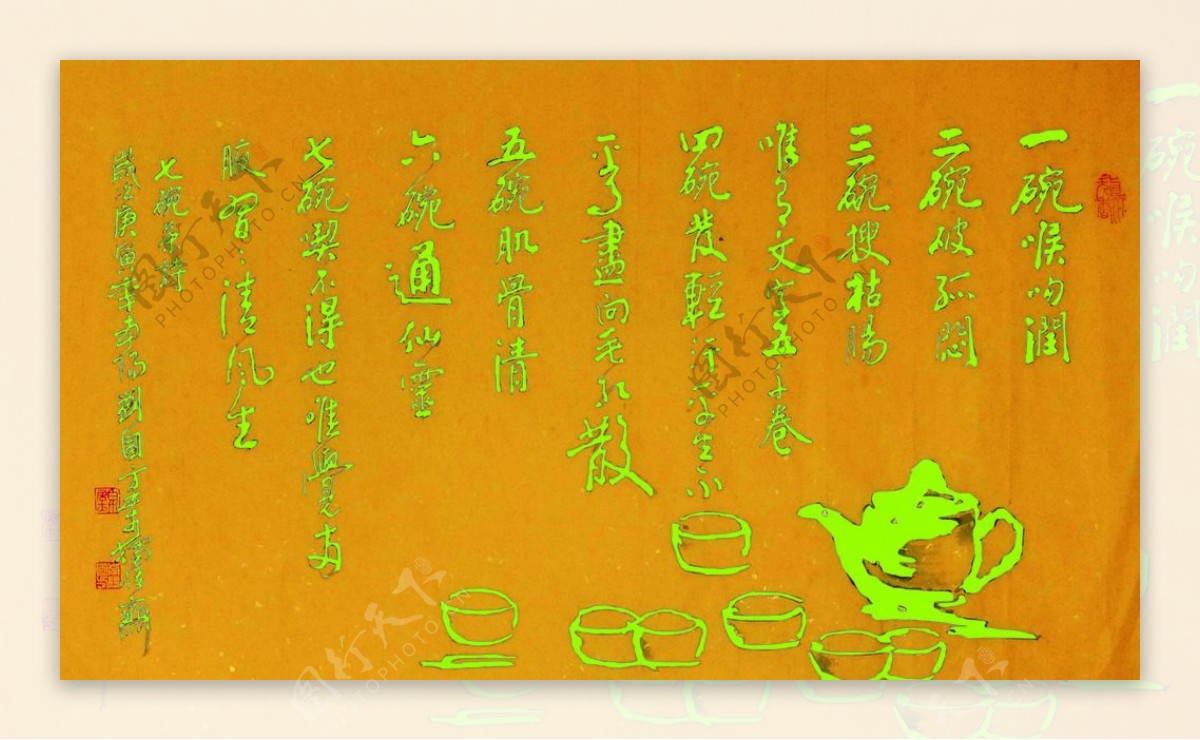 一碗喉吻潤
二碗破孤悶
三碗搜枯腸
唯有文字五千卷
四碗发輕汗平生不
平事盡向毛孔散
五碗肌骨清
六碗通仙靈
七碗喫不得也唯覺兩
腋習〻清風生
七碗茶詩
歲次庚寅年南陽劉國方
图行天下
PHOTOPHOTO.CN